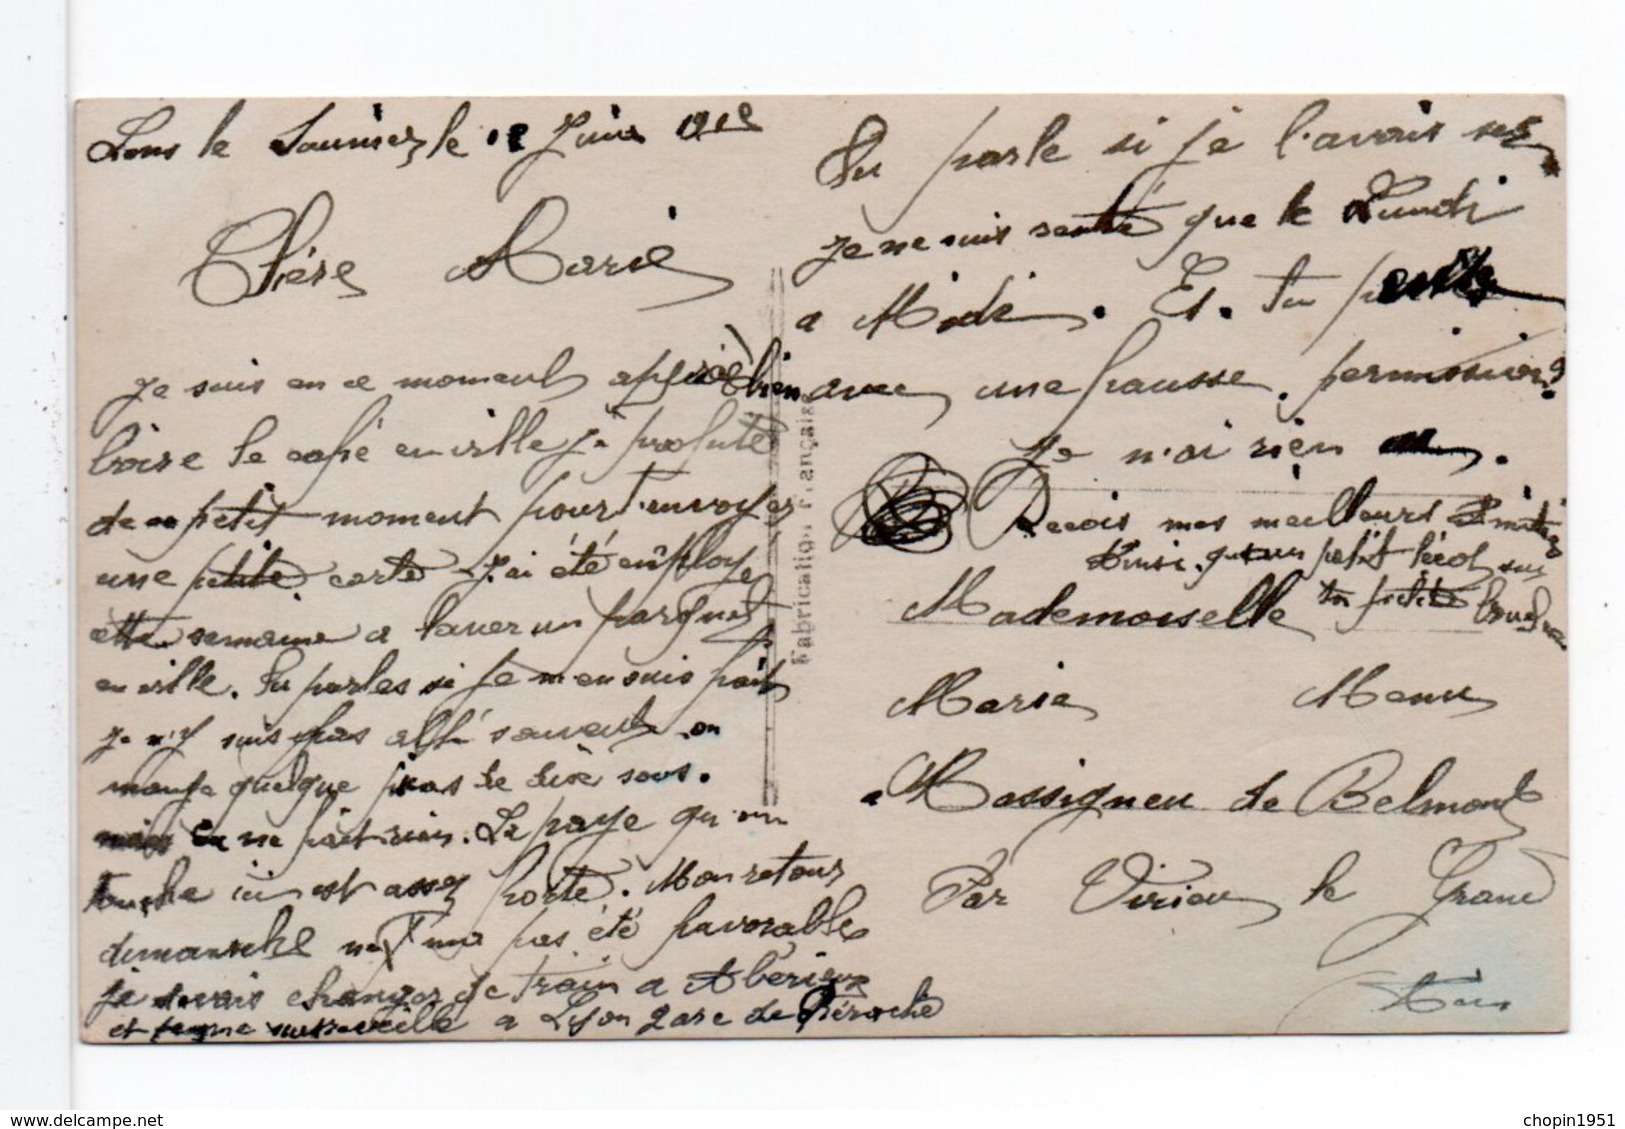 Lons le Saunier le Juin
Chère Marie
Je suis en ce moment après
boire le café en ville Je profite
de ce petit moment pour t'envoyer
une petite carte J'ai été employé
cette semaine a laver un parquet
en ville. Tu parles si je m'en suis fait
Je n'y suis pas allé souvent on
mange quelque pas de dix sous.
mais ca ne fait rien. La paye qu'on
touche ici est assez forte. Mon retour
dimanche ne pas été favorable
je devais changer de train a Ambérieux
et a Lyon gare de Péroche
Tu parle si je l'avais sec
Je ne suis rentré que le Lundi
a Midi. Et. tu
bien avec une fausse permission?
Je n'ai rien eu.
Recois mes meilleurs Amitiés
Ainsi qu'un petit bécot sur
ta petite bouche
Mademoiselle
Marie Menu
a Massigneu de Belmont
Par Virieu le Grand
Ain
Fabrication Française
delcampe.net
chopin1951